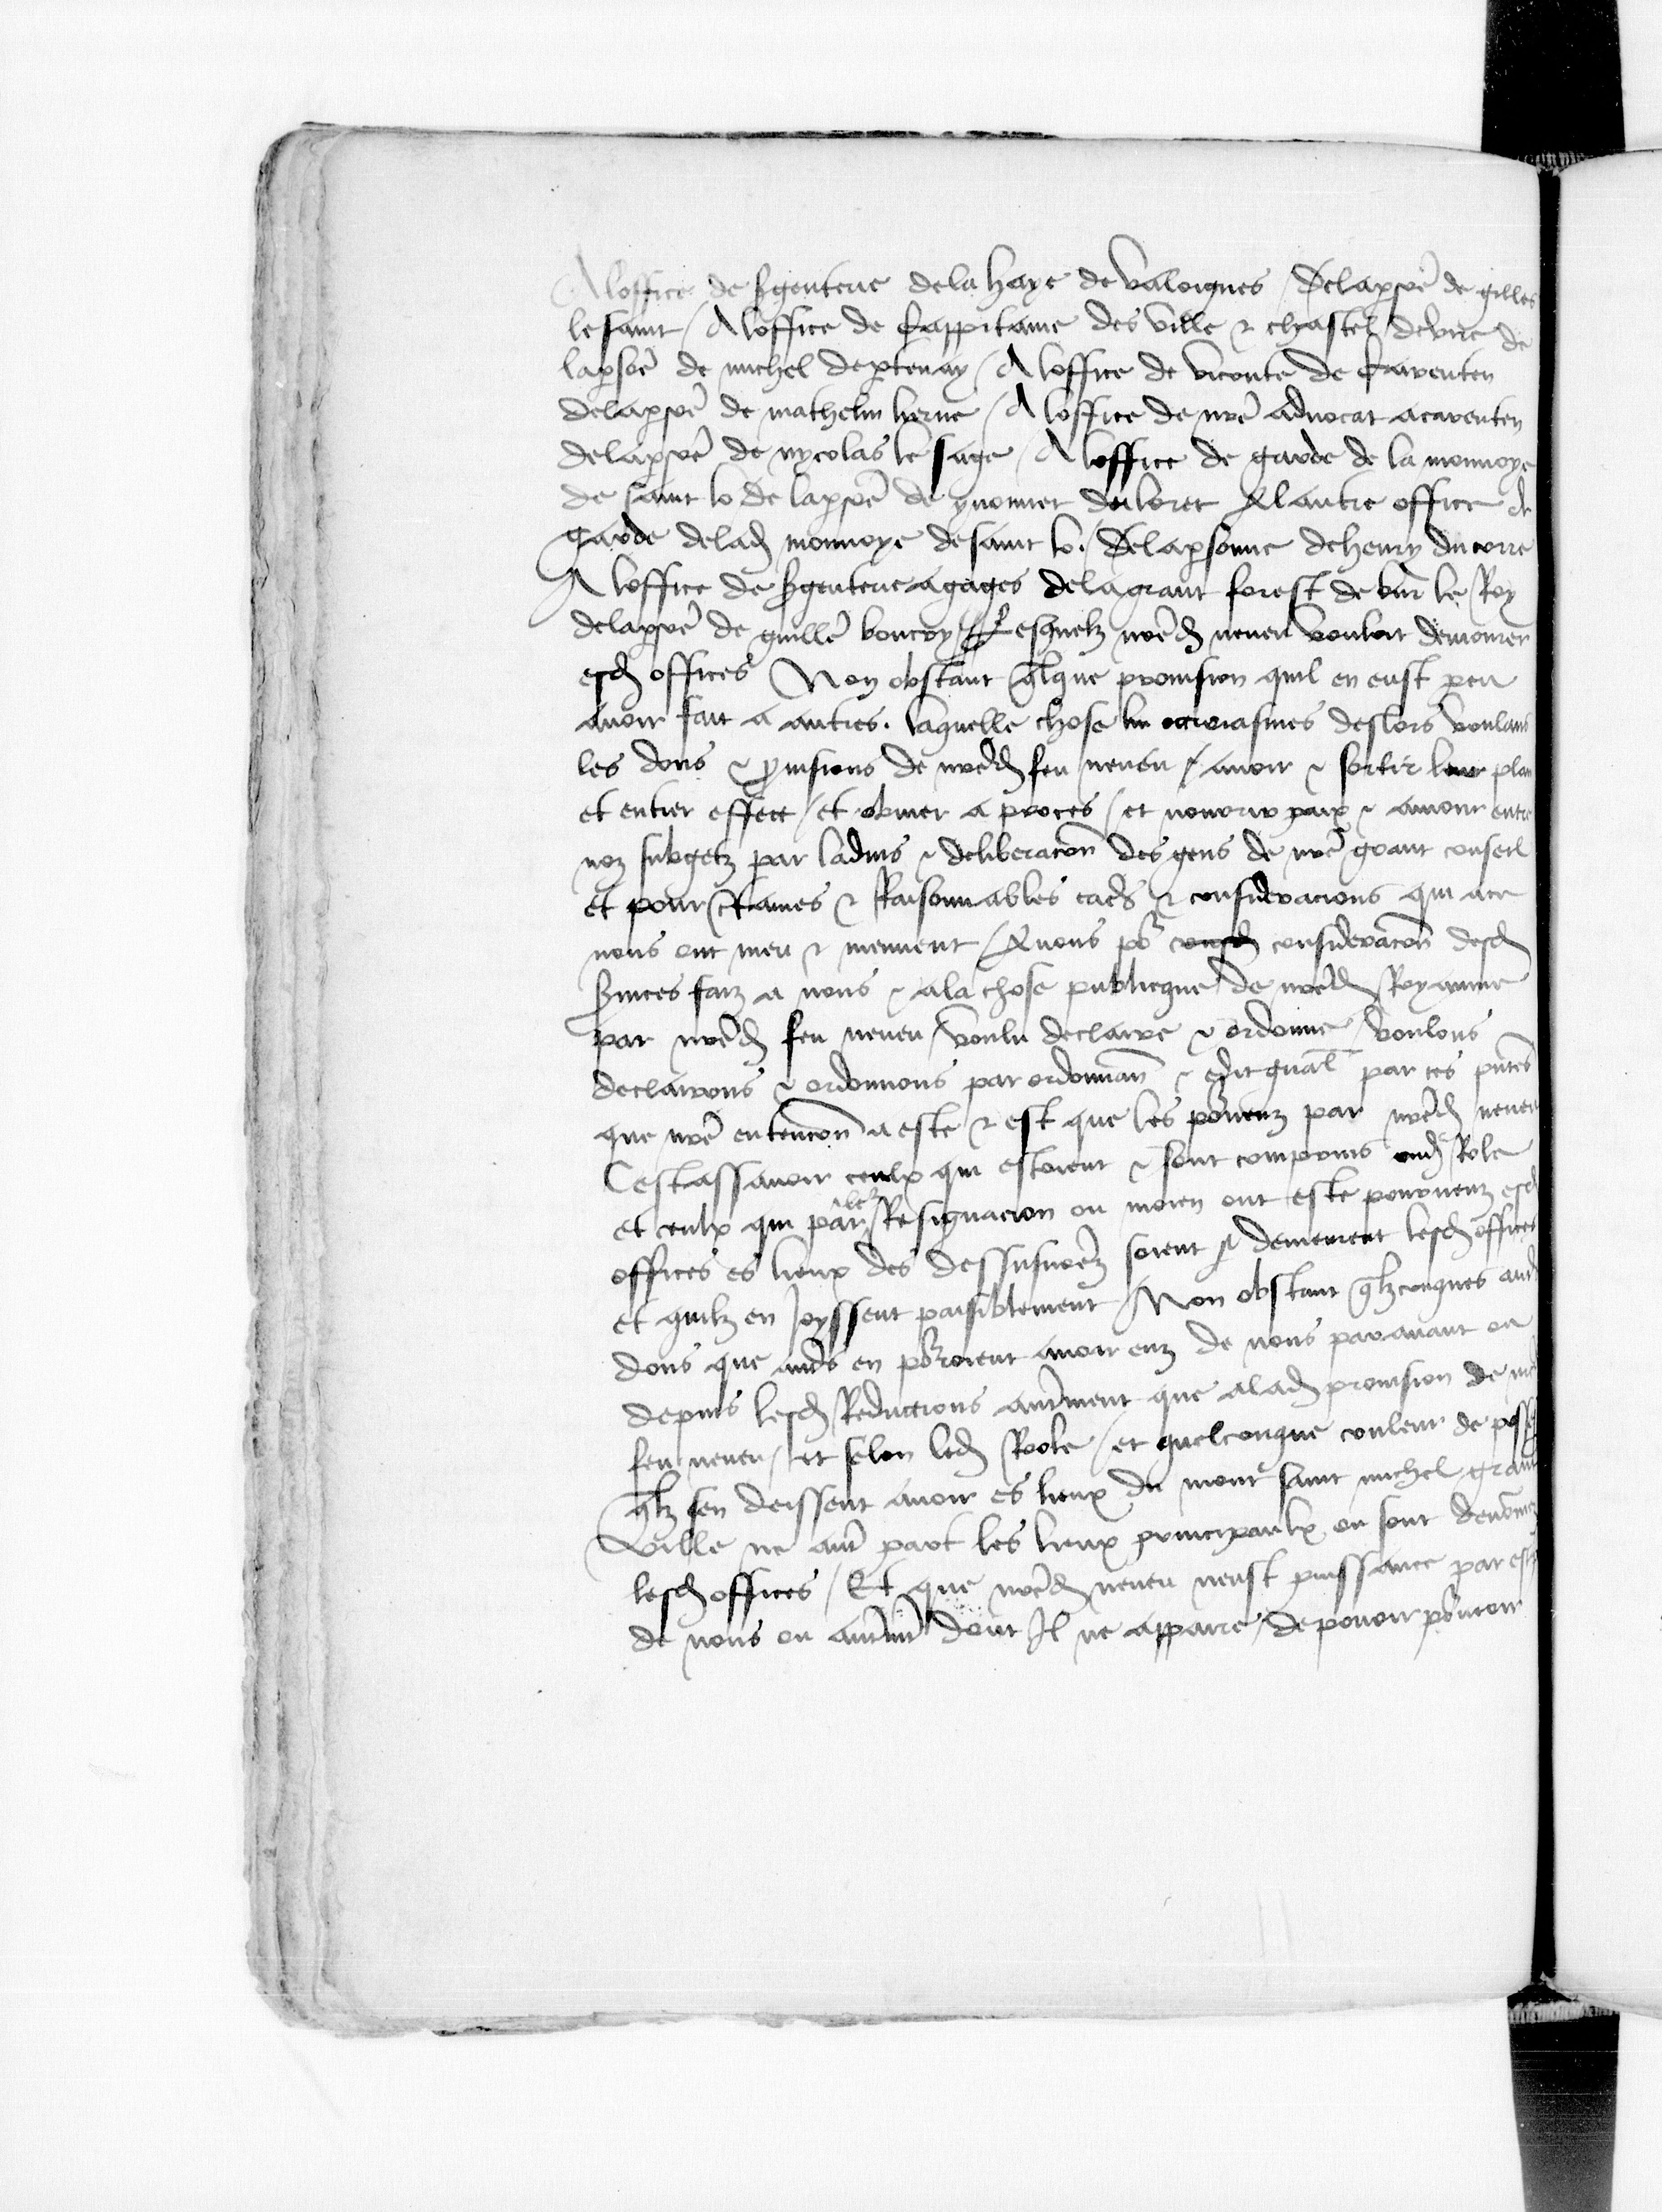 A loffice de sgenterie de la haye de Valoignes / De la psoe de gilles
le saint / A loffice de Cappitaine des ville & chastel de vire de
la psoe de michel de ptenay / A loffice de viconte de Carenten
de la psoe de mathelin herue / A loffice de nre aduocat a carenten
de la psoe de nycolas le sage / A loffice de garde de la monnoye
de saint lo de la psoe de yuonnet du loret A lautre office de
garde de lad monnoye de saint lo. De la psonne de henry du
A loffice de sgenterie a gages de la grant forest de bur le Roy
de la psoe de guille boucry / Lesquelz nred neueu vouloit demourer
esd offices Non obstant qlque prouision quil en eust peu
auoir fait a autres. laquelle chose lui octroiasmes deslors voulans
les dons & prouisions de nred feu neueu / auoir & sortir leur plain
et entier effect / et obuier a proces / et nourrir paix & amour entre
noz subgetz par laduis & deliberacon des gens de nre grant conseil
et pour certaines & Raisonnables causes & consideracions qui a ce
nous ont meu & meuuent / A nous pour considd consideracon desd
seruices faiz a nous & a la chose publicque de nred Royaume
par nred feu neueu / voulu declaire & ordonne / voulons
declairons & ordonnons par ordonnan & edit gnal par ces pntes
que nre entencon a este & est que les pourueuz par nred neueu
Cest assauoir ceulx qui estoient & sont comprins oud Role
et ceulx qui par leur Resignacion ou moien ont este pourueuz esd
offices es lieux des dessusnomez soient & demeurent lesd offices
et quilz en Joyssent paisiblement / Non obstant qlzconques autres
dons que autrs en pourroient auoir euz de nous parauant ou
depuis lesd Reductions autrement que a lad prouision de nred
feu neueu / et selon led Role / et quelconque couleur de poss
qlz sen deissent auoir es lieux du mont saint michel grant
ville ne autre part les lieux principaulx ou sont denomez
lesd offices / Et que nred neueu neust puissance par escript
de nous ou autremt dont Il ne appaire / de pouoir pourueoir